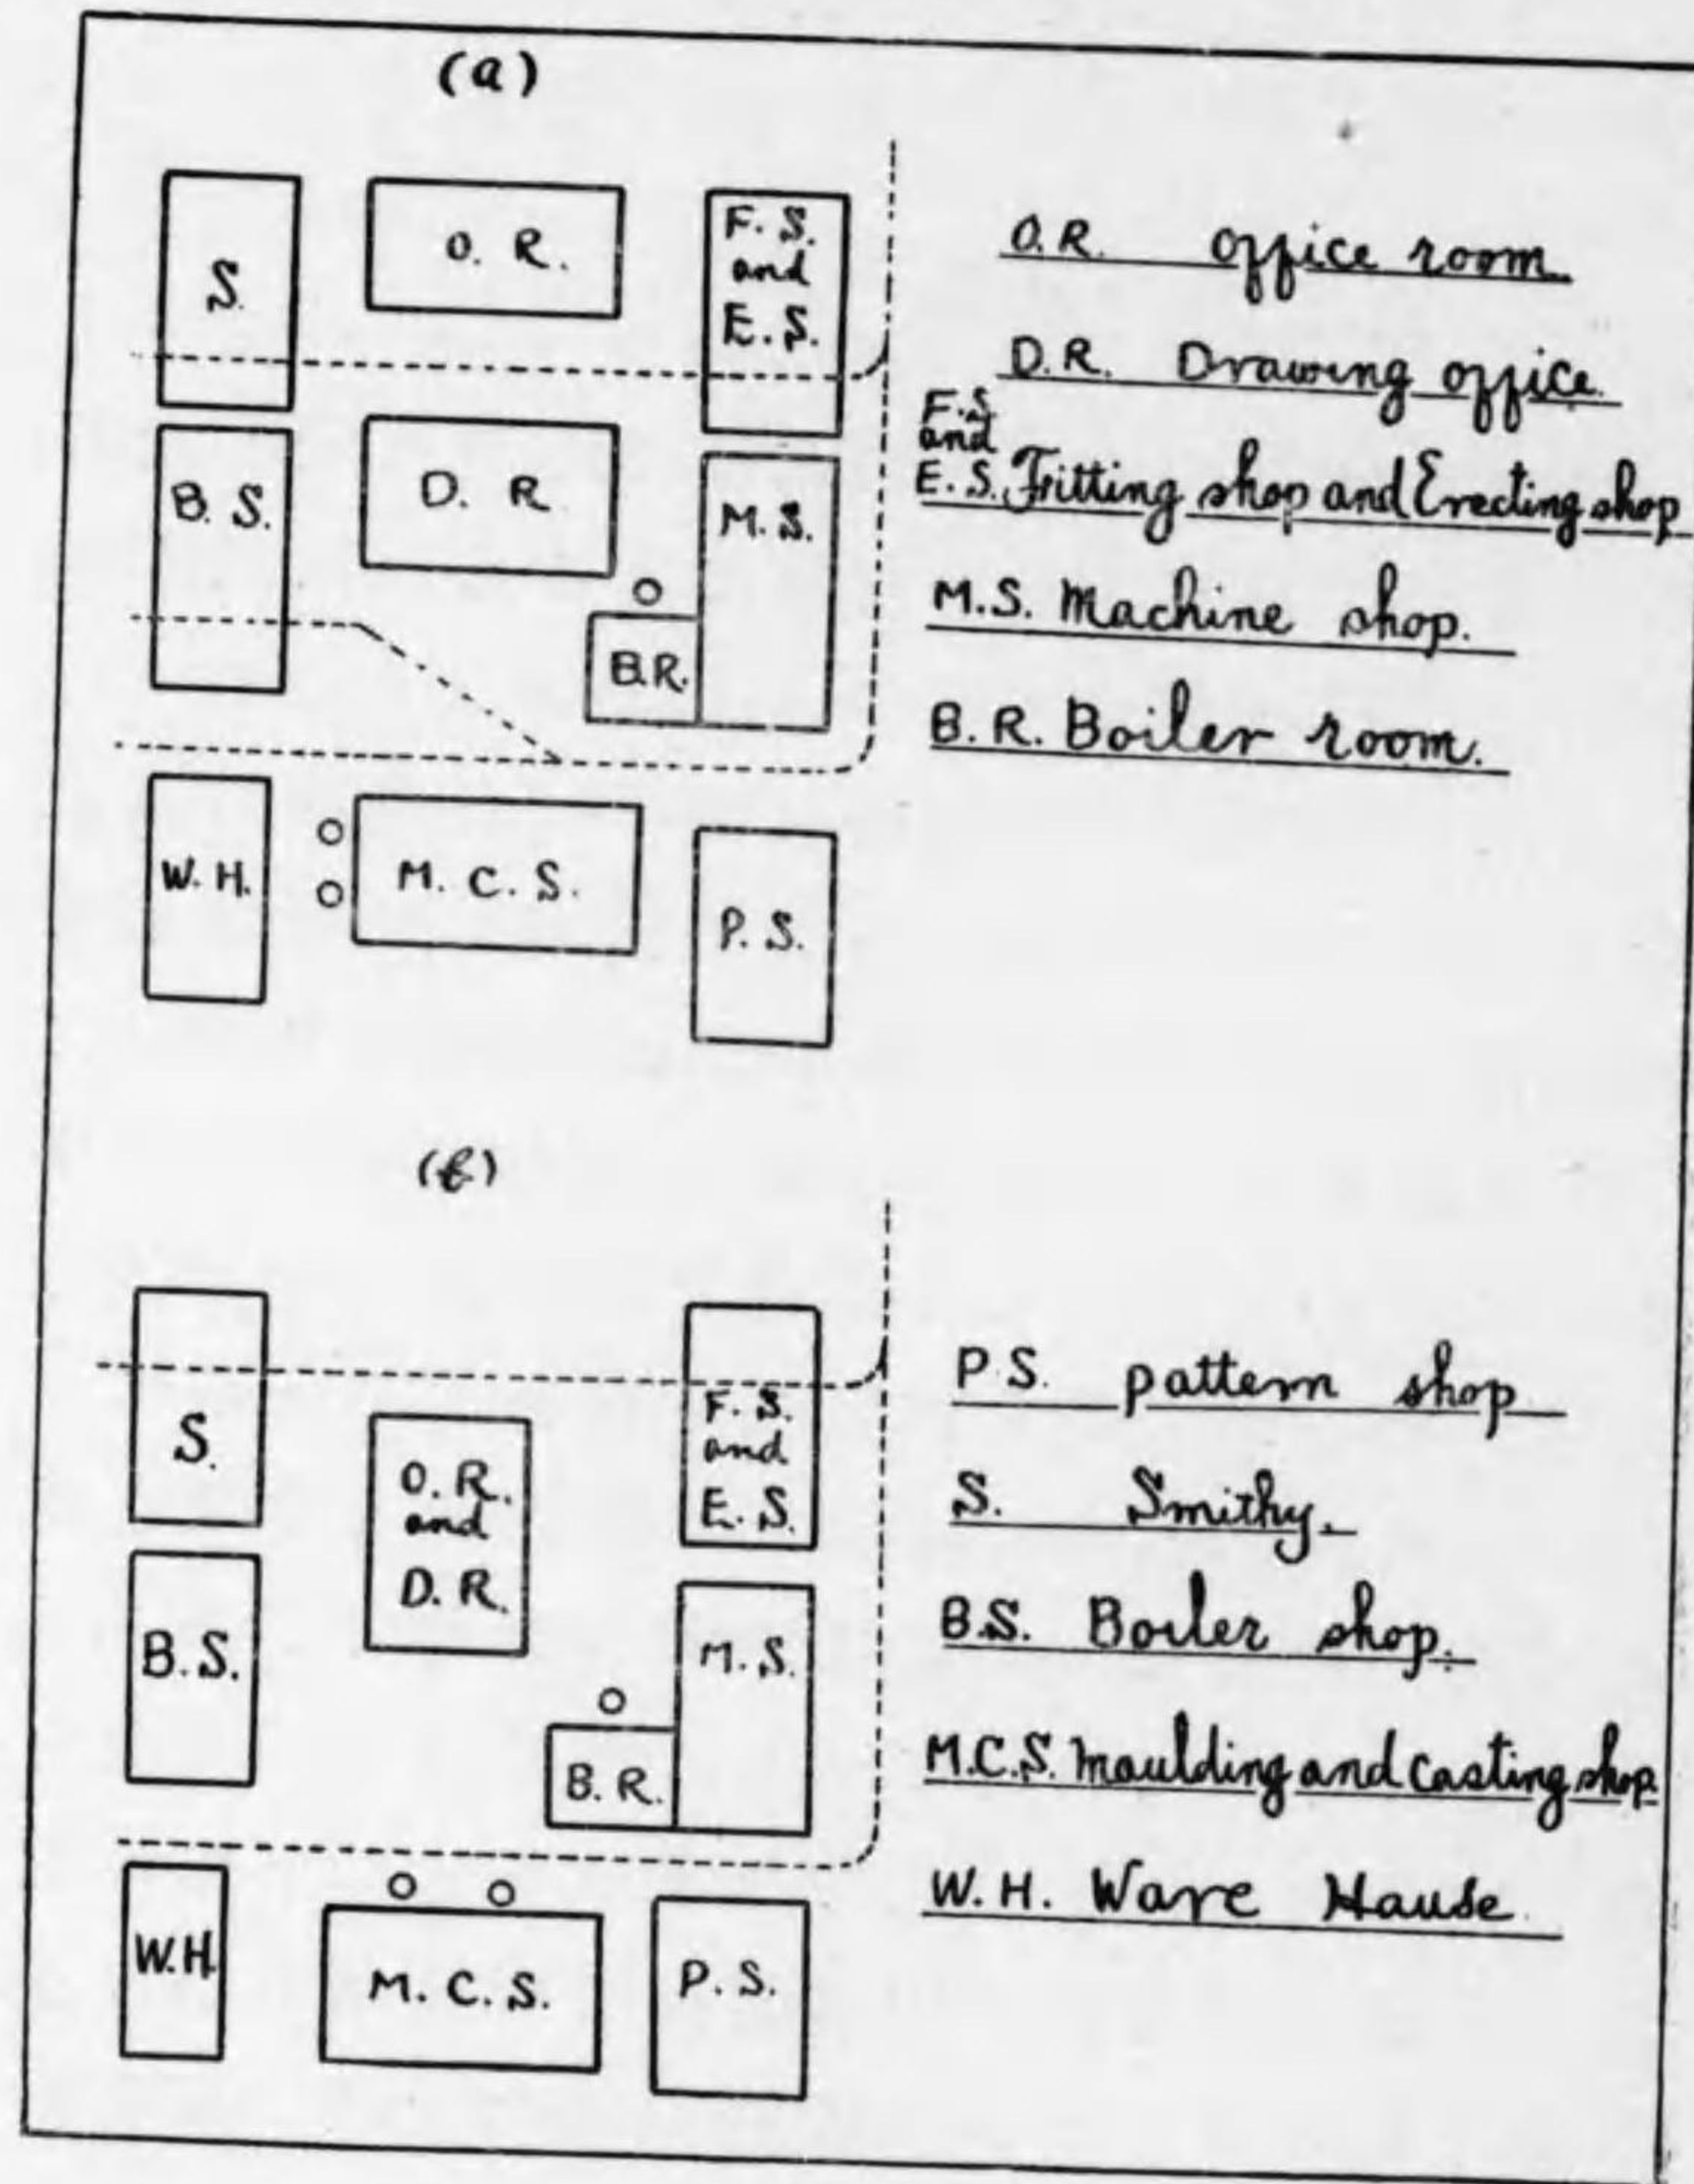 (a)
S.
O. R.
F. S.
and
E. S.
B. S.
D. R
M. S.
B.R.
W. H.
M. C. S.
P. S.
O.R. office room.
D.R. Drawing office.
F.S.
and
E.S. Fritting shop and Erecting shop
M.S. Machine shop.
B. R. Boiler room.
(b)
S.
O. R.
and
D. R.
F. S.
and
E. S.
B. S.
M. S.
B. R.
W.H.
M. C. S.
P. S.
P.S. pattern shop
S. Smithy.
B.S. Boiler shop.
M.C.S. Moulding and Casting shop.
W. H. Ware Hause.